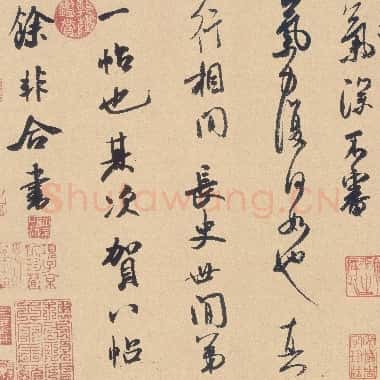 氣深不審
氣力復何如也真
行相間長史世間第
一帖也其次賀八帖
餘非合書
Shufawang.CN